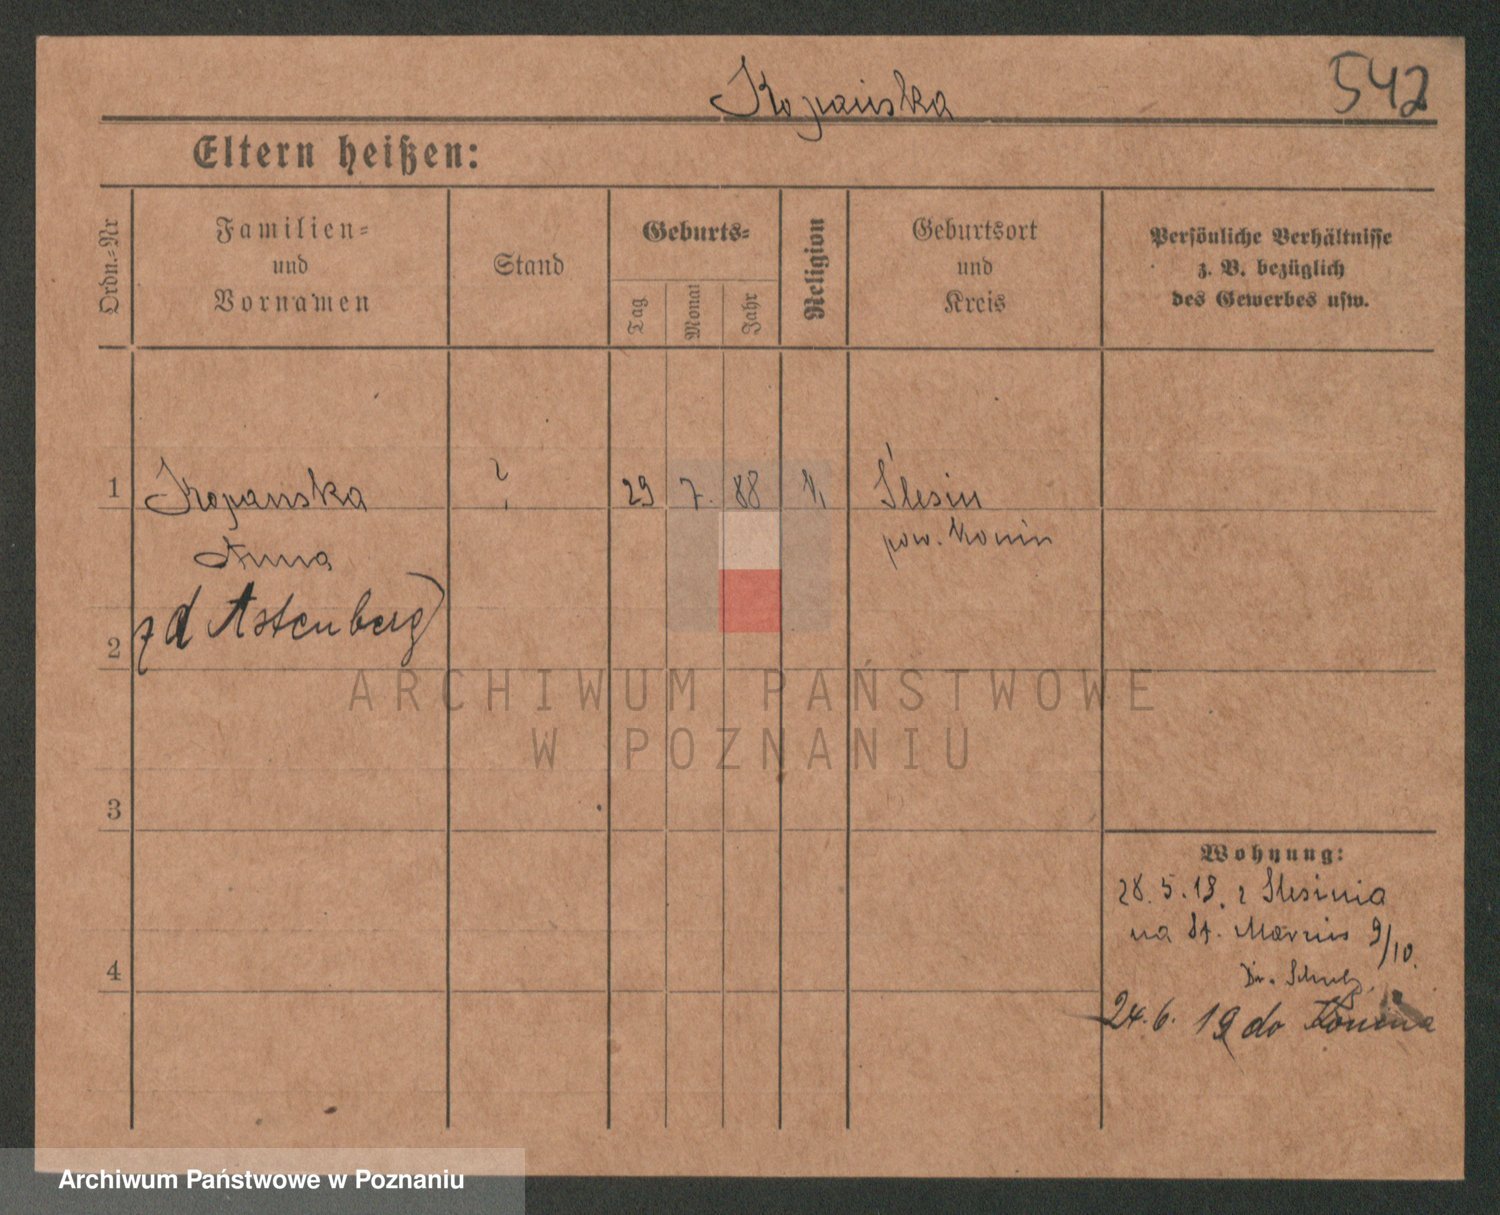 Kopańska
542
Eltern heißen:
Ordn.-Nr
Familien-
und
Vornamen
Stand
Geburts-
Tag
Monat
Jahr
Religion
Geburtsort
und
Kreis
Persönliche Verhältnisse
z. B. bezüglich
des Gewerbes usw.
1
Kopanska
29
7.
88
Ślesin
Anna
pow. Konin
z d Astenberg)
2
ARCHIWUM PAŃSTWOWE
W POZNANIU
3
4
Wohnung:
28.5.19. z Slesinia
na St. Marcin 9/10.
Dr. Schulz
24.6.19 do Konina
Archiwum Państwowe w Poznaniu